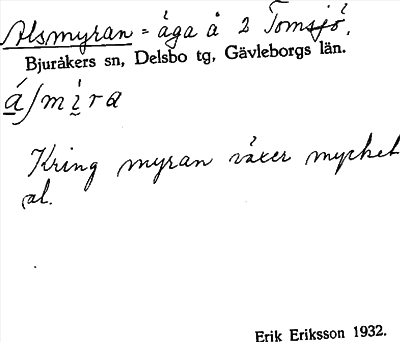 Alsmyran = äga å 2 Tomsjö.
Bjuråkers sn, Delsbo tg, Gävleborgs län.
Kring myran växer mycket
al.
Erik Eriksson 1932.